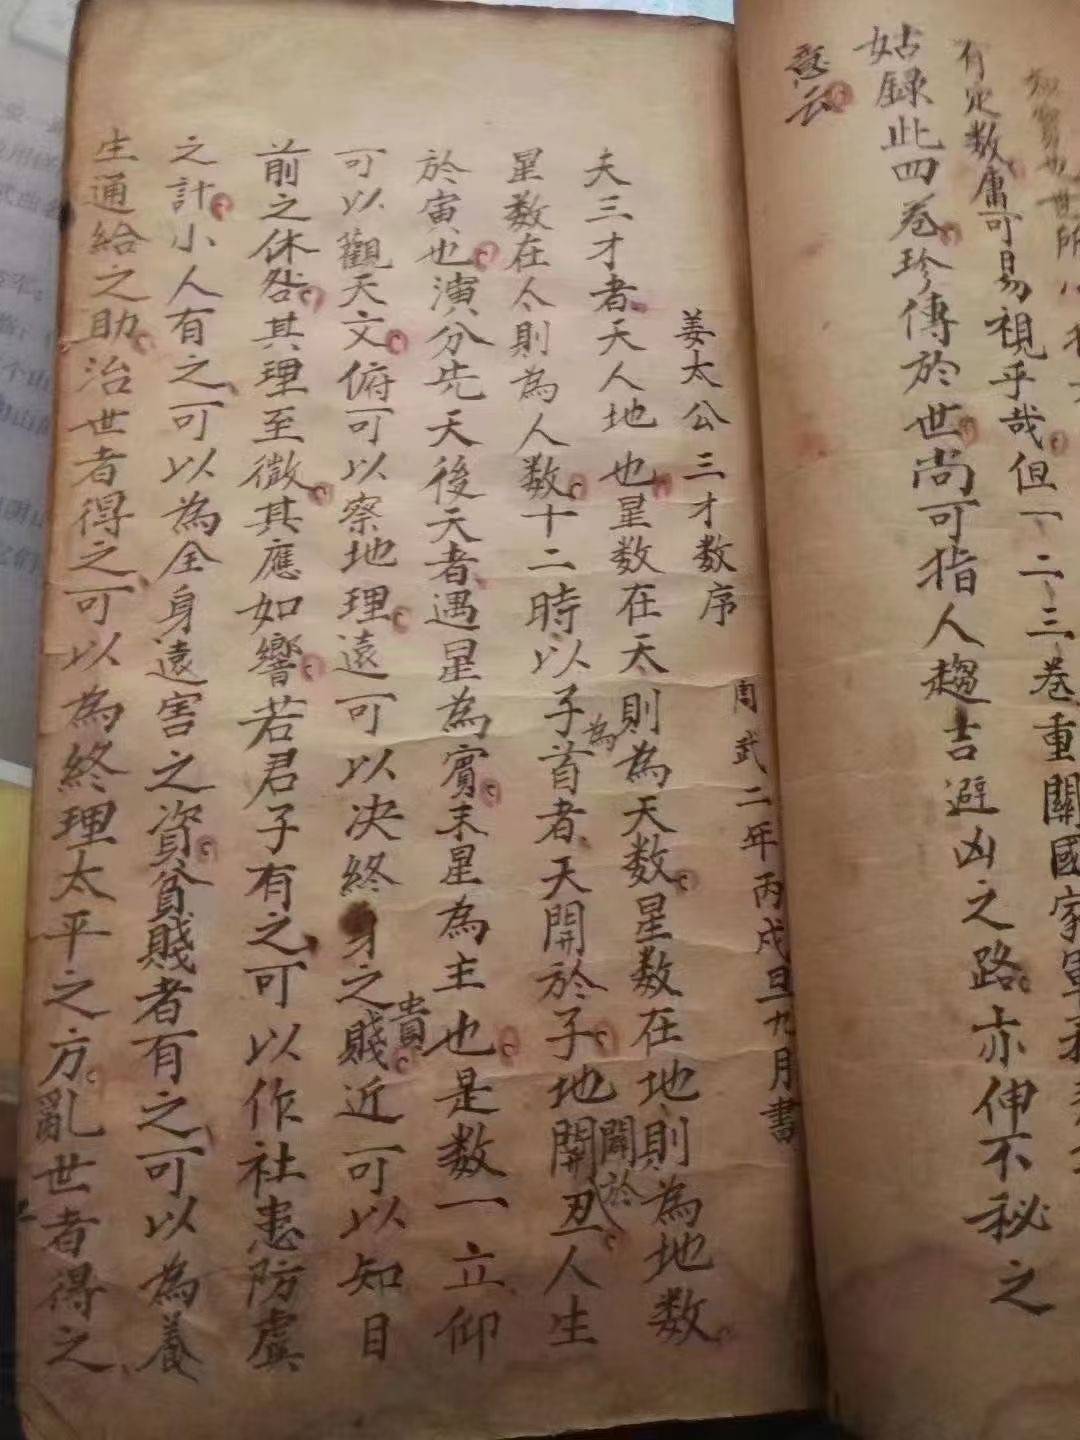 有定数庸可易視乎哉但一二三卷重關國家軍
姑錄此四卷珍傳於世尚可指人趨吉避凶之路亦伸不秘之
意云
姜太公三才数序
周武二年丙戍旦九月書
夫三才者天人地也星数在天則為天数星数在地則為地数
星数在人則為人数十二時以子為首者天開於子地開闢於丑人生
於寅也演分先天後天者遇星為賓末星為主也是数一立仰
可以觀天文俯可以察地理遠可以决終身之賤貴近可以知目
前之休咎其理至微其應如響若君子有之可以作社患防虞
之計小人有之可以為全身遠害之資貧賤者有之可以為養
生通給之助治世者得之可以為終理太平之方亂世者得之